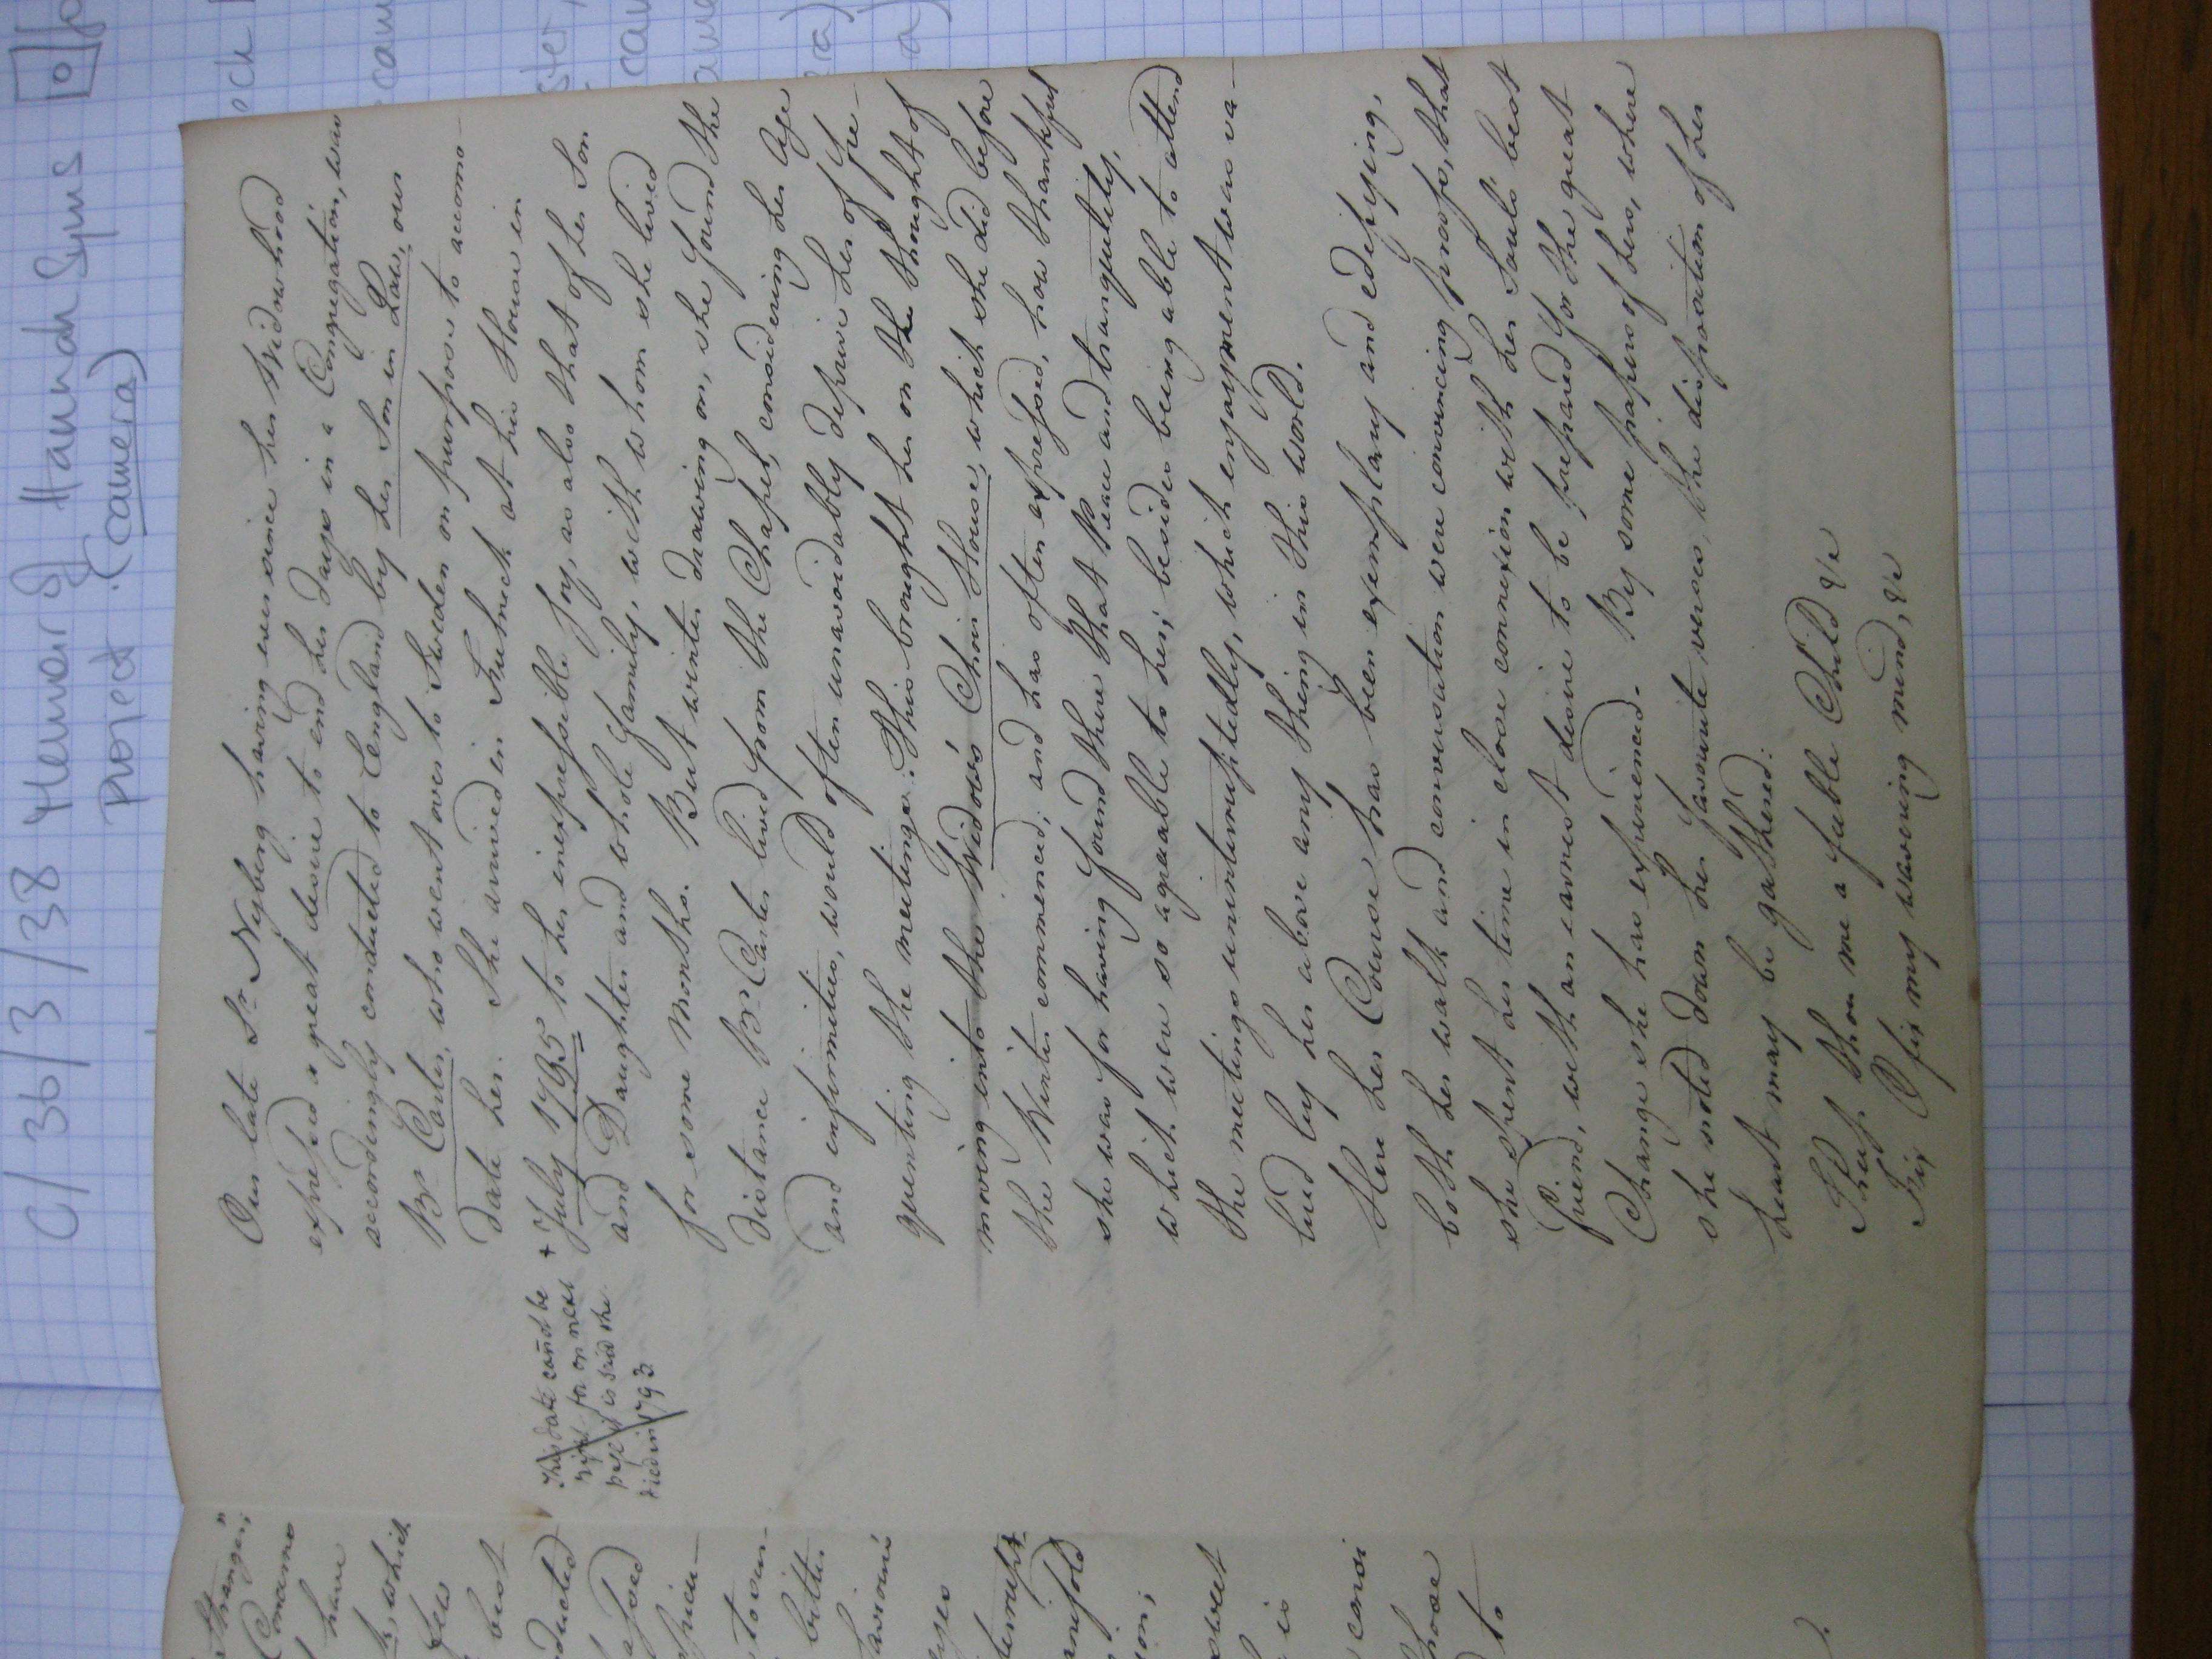 C/36/3/38 Memoir of Hannah Syms
Project (camera)
Stranger",
Concerns
have
which
few
best
ducted
assed
spicu-
to sur-
bitter
Saviour's
eyes
terrupt-
anifold
ion;
sweet
is
consi
those
to
This date cannot be
right for on next
page it is said she
died in 1793
Our late Sr. Nyberg having ever since her Widowhood
expressed a great desire to end her days in a Congregation, was
accordingly conducted to England by her Son in Law, our
Br. Carter, who went over to Sweden on purpose to accomo-
date her. She arrived in Fulneck at his House in
+ July 1795 to her inexpressible Joy, as also that of her Son
and Daughter and whole family, with whom she lived
for some Months. But winter drawing on, she found the
distance Br. Carter lived from the Chapel, considering her Age
and infirmities, would often unavoidably deprive her of fre-
quenting the meetings. This brought her on the thought of
moving into the Widow's Choir House, which she did before
the Winter commenced; and has often expressed, how thankful
she was for having found there that Peace and tranquility,
which were so agreeable to her; besides being able to attend
the meetings uninterruptedly, which enjoyment was va-
lued by her above any thing in this world.
Here her Course has been exemplary and edifying,
both her walk and conversation were convincing proofs, that
she spent her time in close connexion with her Soul's best
friend, with an earnest desire to be prepared for the great
Change she has experienced. By some papers of hers, where
she noted down her favourite verses, the disposition of her
heart may be gathered:
Keep thou me a feeble Child &c
Fix O fix my wavering mind, &c